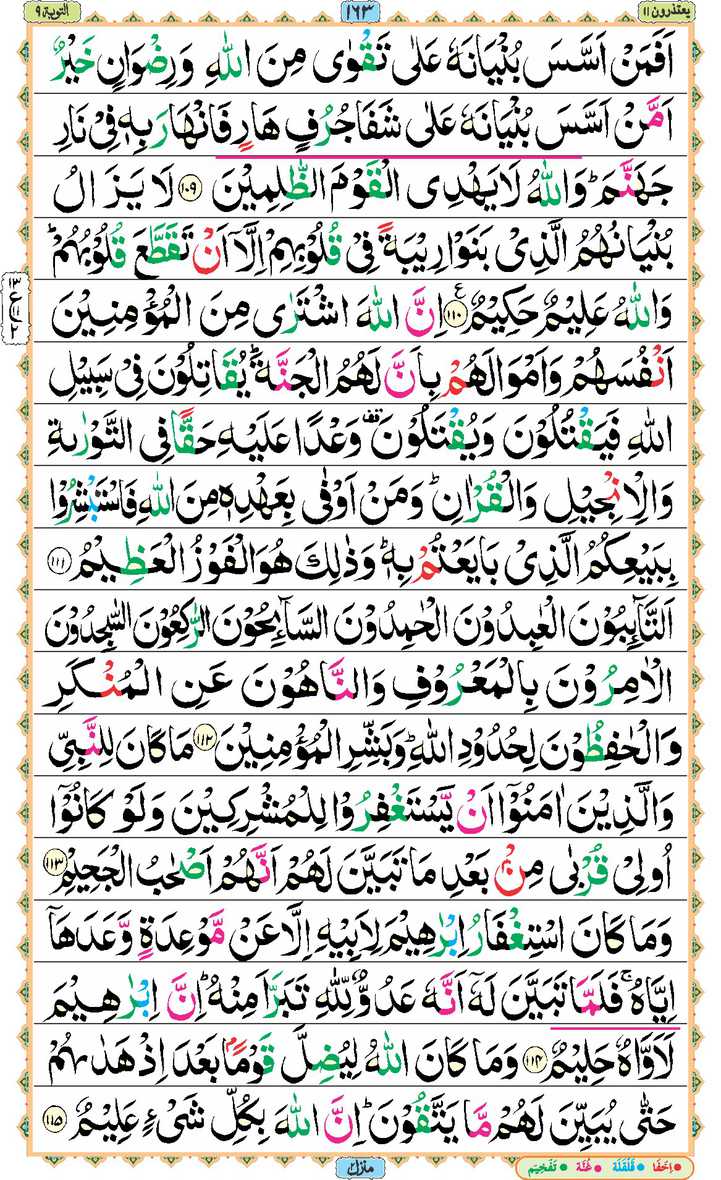 یعتذرون ۱۱
۱۶۳
التوبة ۹
اَفَمَنْ اَسَّسَ بُنْيَانَهٗ عَلٰى تَقْوٰى مِنَ اللّٰهِ وَرِضْوَانٍ خَيْرٌ
اَمْ مَّنْ اَسَّسَ بُنْيَانَهٗ عَلٰى شَفَا جُرُفٍ هَارٍ فَانْهَارَ بِهٖ فِيْ نَارِ
جَهَنَّمَ ؕ وَاللّٰهُ لَا يَهْدِى الْقَوْمَ الظّٰلِمِيْنَ ۱۰۹ لَا يَزَالُ
بُنْيَانُهُمُ الَّذِىْ بَنَوْا رِيْبَةً فِىْ قُلُوْبِهِمْ اِلَّاۤ اَنْ تَقَطَّعَ قُلُوْبُهُمْ ؕ
وَاللّٰهُ عَلِيْمٌ حَكِيْمٌ ۱۱۰ اِنَّ اللّٰهَ اشْتَرٰى مِنَ الْمُؤْمِنِيْنَ
اَنْفُسَهُمْ وَاَمْوَالَهُمْ بِاَنَّ لَهُمُ الْجَنَّةَ ؕ يُقَاتِلُوْنَ فِىْ سَبِيْلِ
اللّٰهِ فَيَقْتُلُوْنَ وَيُقْتَلُوْنَ وَعْدًا عَلَيْهِ حَقًّا فِى التَّوْرٰىةِ
وَالْاِنْجِيْلِ وَالْقُرْاٰنِ ؕ وَمَنْ اَوْفٰى بِعَهْدِهٖ مِنَ اللّٰهِ فَاسْتَبْشِرُوْا
بِبَيْعِكُمُ الَّذِىْ بَايَعْتُمْ بِهٖ ؕ وَذٰلِكَ هُوَ الْفَوْزُ الْعَظِيْمُ ۱۱۱
اَلتَّآئِبُوْنَ الْعٰبِدُوْنَ الْحٰمِدُوْنَ السَّآئِحُوْنَ الرّٰكِعُوْنَ السّٰجِدُوْنَ
الْاٰمِرُوْنَ بِالْمَعْرُوْفِ وَالنَّاهُوْنَ عَنِ الْمُنْكَرِ
وَالْحٰفِظُوْنَ لِحُدُوْدِ اللّٰهِ ؕ وَبَشِّرِ الْمُؤْمِنِيْنَ ۱۱۲ مَا كَانَ لِلنَّبِىِّ
وَالَّذِيْنَ اٰمَنُوْۤا اَنْ يَّسْتَغْفِرُوْا لِلْمُشْرِكِيْنَ وَلَوْ كَانُوْۤا
اُولِىْ قُرْبٰى مِنْۢ بَعْدِ مَا تَبَيَّنَ لَهُمْ اَنَّهُمْ اَصْحٰبُ الْجَحِيْمِ ۱۱۳
وَمَا كَانَ اسْتِغْفَارُ اِبْرٰهِيْمَ لِاَبِيْهِ اِلَّا عَنْ مَّوْعِدَةٍ وَّعَدَهَاۤ
اِيَّاهُ ۚ فَلَمَّا تَبَيَّنَ لَهٗۤ اَنَّهٗ عَدُوٌّ لِّلّٰهِ تَبَرَّاَ مِنْهُ ؕ اِنَّ اِبْرٰهِيْمَ
لَاَوَّاهٌ حَلِيْمٌ ۱۱۴ وَمَا كَانَ اللّٰهُ لِيُضِلَّ قَوْمًاۢ بَعْدَ اِذْ هَدٰىهُمْ
حَتّٰى يُبَيِّنَ لَهُمْ مَّا يَتَّقُوْنَ ؕ اِنَّ اللّٰهَ بِكُلِّ شَىْءٍ عَلِيْمٌ ۱۱۵
منزل ۲
اِخْفَا قَلْقَلَه غُنَّه تَفْخِيْم